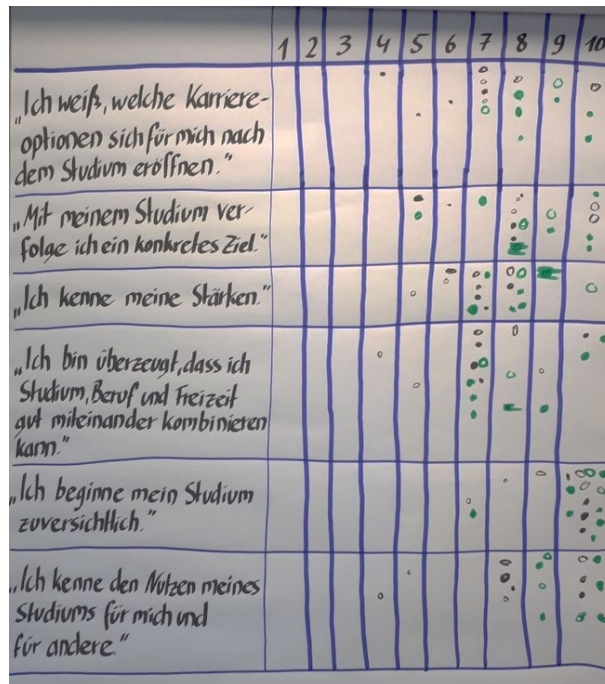 1 2 3 4 5 6 7 8 9 10
„Ich weiß, welche Karriere-
optionen sich für mich nach
dem Studium eröffnen.“
„Mit meinem Studium ver-
folge ich ein konkretes Ziel.“
„Ich kenne meine Stärken.“
„Ich bin überzeugt, dass ich
Studium, Beruf und Freizeit
gut miteinander kombinieren
kann.“
„Ich beginne mein Studium
zuversichtlich.“
„Ich kenne den Nutzen meines
Studiums für mich und
für andere.“